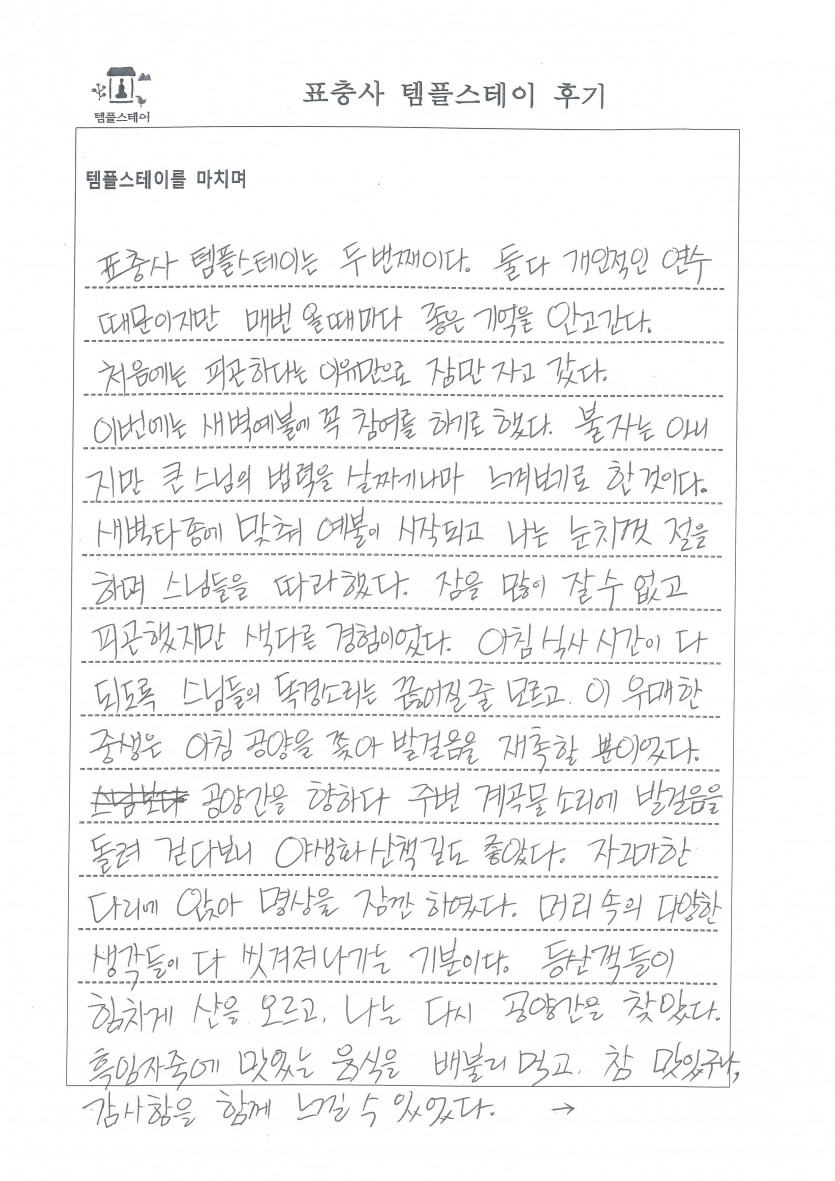 템플스테이
표충사 템플스테이 후기
템플스테이를 마치며
표충사 템플스테이는 두번째이다. 둘다 개인적인 연수
때문이지만 매번 올때마다 좋은 기억을 안고간다.
처음에는 피곤하다는 이유만으로 잠만 자고 갔다.
이번에는 새벽예불에 꼭 참여를 하기로 했다. 불자는 아니
지만 큰스님의 법력을 살짝이나마 느껴보기로 한것이다.
새벽타종에 맞춰 예불이 시작되고 나는 눈치껏 절을
하며 스님들을 따라했다. 잠을 많이 잘수 없고
피곤했지만 색다른 경험이었다. 아침식사 시간이 다
되도록 스님들의 독경소리는 끊어질줄 모르고, 이 우매한
중생은 아침 공양을 쫓아 발걸음을 재촉할 뿐이었다.
스님보다 공양간을 향하다 주변 계곡물소리에 발걸음을
돌려 걷다보니 야생화산책길도 좋았다. 자그마한
다리에 앉아 명상을 잠깐 하였다. 머리속의 다양한
생각들이 다 씻겨져나가는 기분이다. 등산객들이
힘차게 산을 오르고, 나는 다시 공양간을 찾았다.
흑임자죽에 맛있는 음식을 배불리 먹고, 참 맛있구나,
감사함을 함께 느낄 수 있었다. →